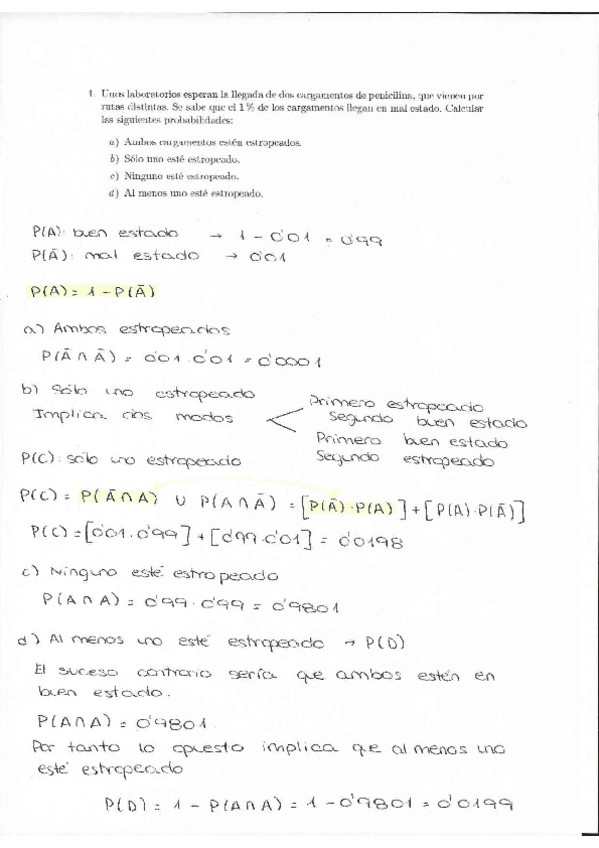 1. Unos laboratorios esperan la llegada de dos cargamentos de penicilina, que vienen por
rutas distintas. Se sabe que el 1 % de los cargamentos llegan en mal estado. Calcular
las siguientes probabilidades:
a) Ambos cargamentos estén estropeados.
b) Sólo uno esté estropeado.
c) Ninguno esté estropeado.
d) Al menos uno esté estropeado.
P(A): buen estado → 1 - 0'01 = 0'99
P(Ā): mal estado → 0'01
P(A) = 1 - P(Ā)
a) Ambos estropeados
P(Ā ∩ Ā) = 0'01 · 0'01 = 0'0001
b) Sólo uno estropeado
Implica dos modos
Primero estropeado
Segundo buen estado
Primero buen estado
Segundo estropeado
P(C): sólo uno estropeado
P(C) = P(Ā ∩ A) ∪ P(A ∩ Ā) = [P(Ā) · P(A)] + [P(A) · P(Ā)]
P(C) = [0'01 · 0'99] + [0'99 · 0'01] = 0'0198
c) Ninguno esté estropeado
P(A ∩ A) = 0'99 · 0'99 = 0'9801
d) Al menos uno esté estropeado → P(D)
El suceso contrario sería que ambos estén en
buen estado.
P(A ∩ A) = 0'9801
Por tanto lo opuesto implica que al menos uno
esté estropeado
P(D) = 1 - P(A ∩ A) = 1 - 0'9801 = 0'0199